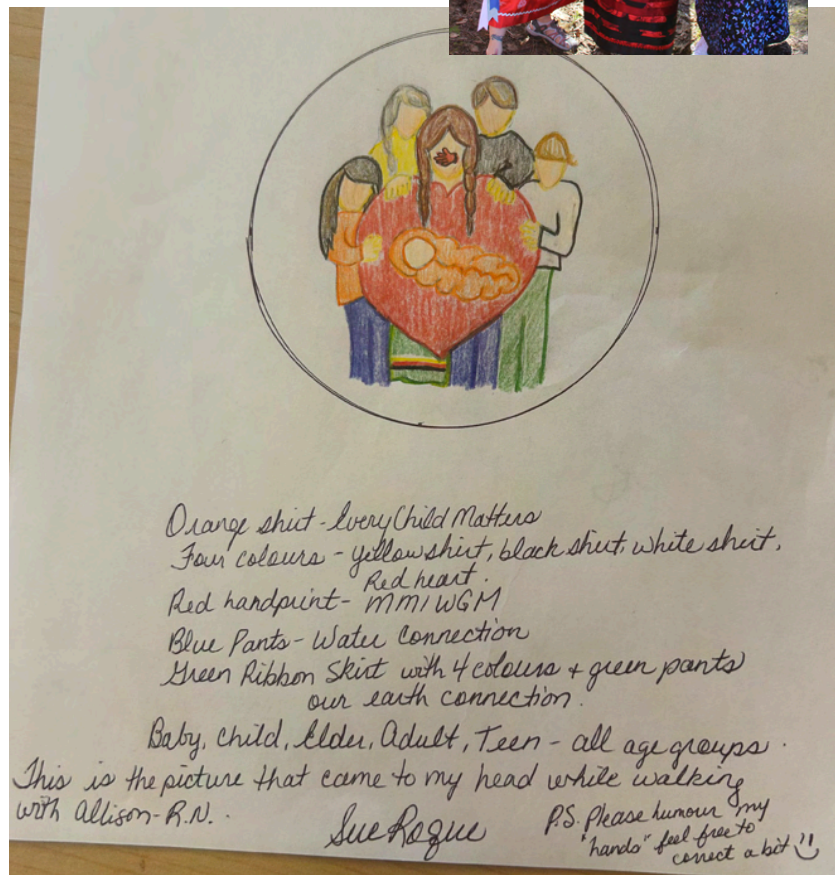 Orange shirt - Every Child Matters
Four colours - yellow shirt, black shirt, white shirt,
Red heart.
Red handprint - MMIWGM
Blue Pants - Water Connection
Green Ribbon Skirt with 4 colours + green pants
our earth connection.
Baby, Child, Elder, Adult, Teen - all age groups.
This is the picture that came to my head while walking
with Allison - R.N.
Sue Rogue
P.S. Please humour my
"hands" feel free to
correct a bit